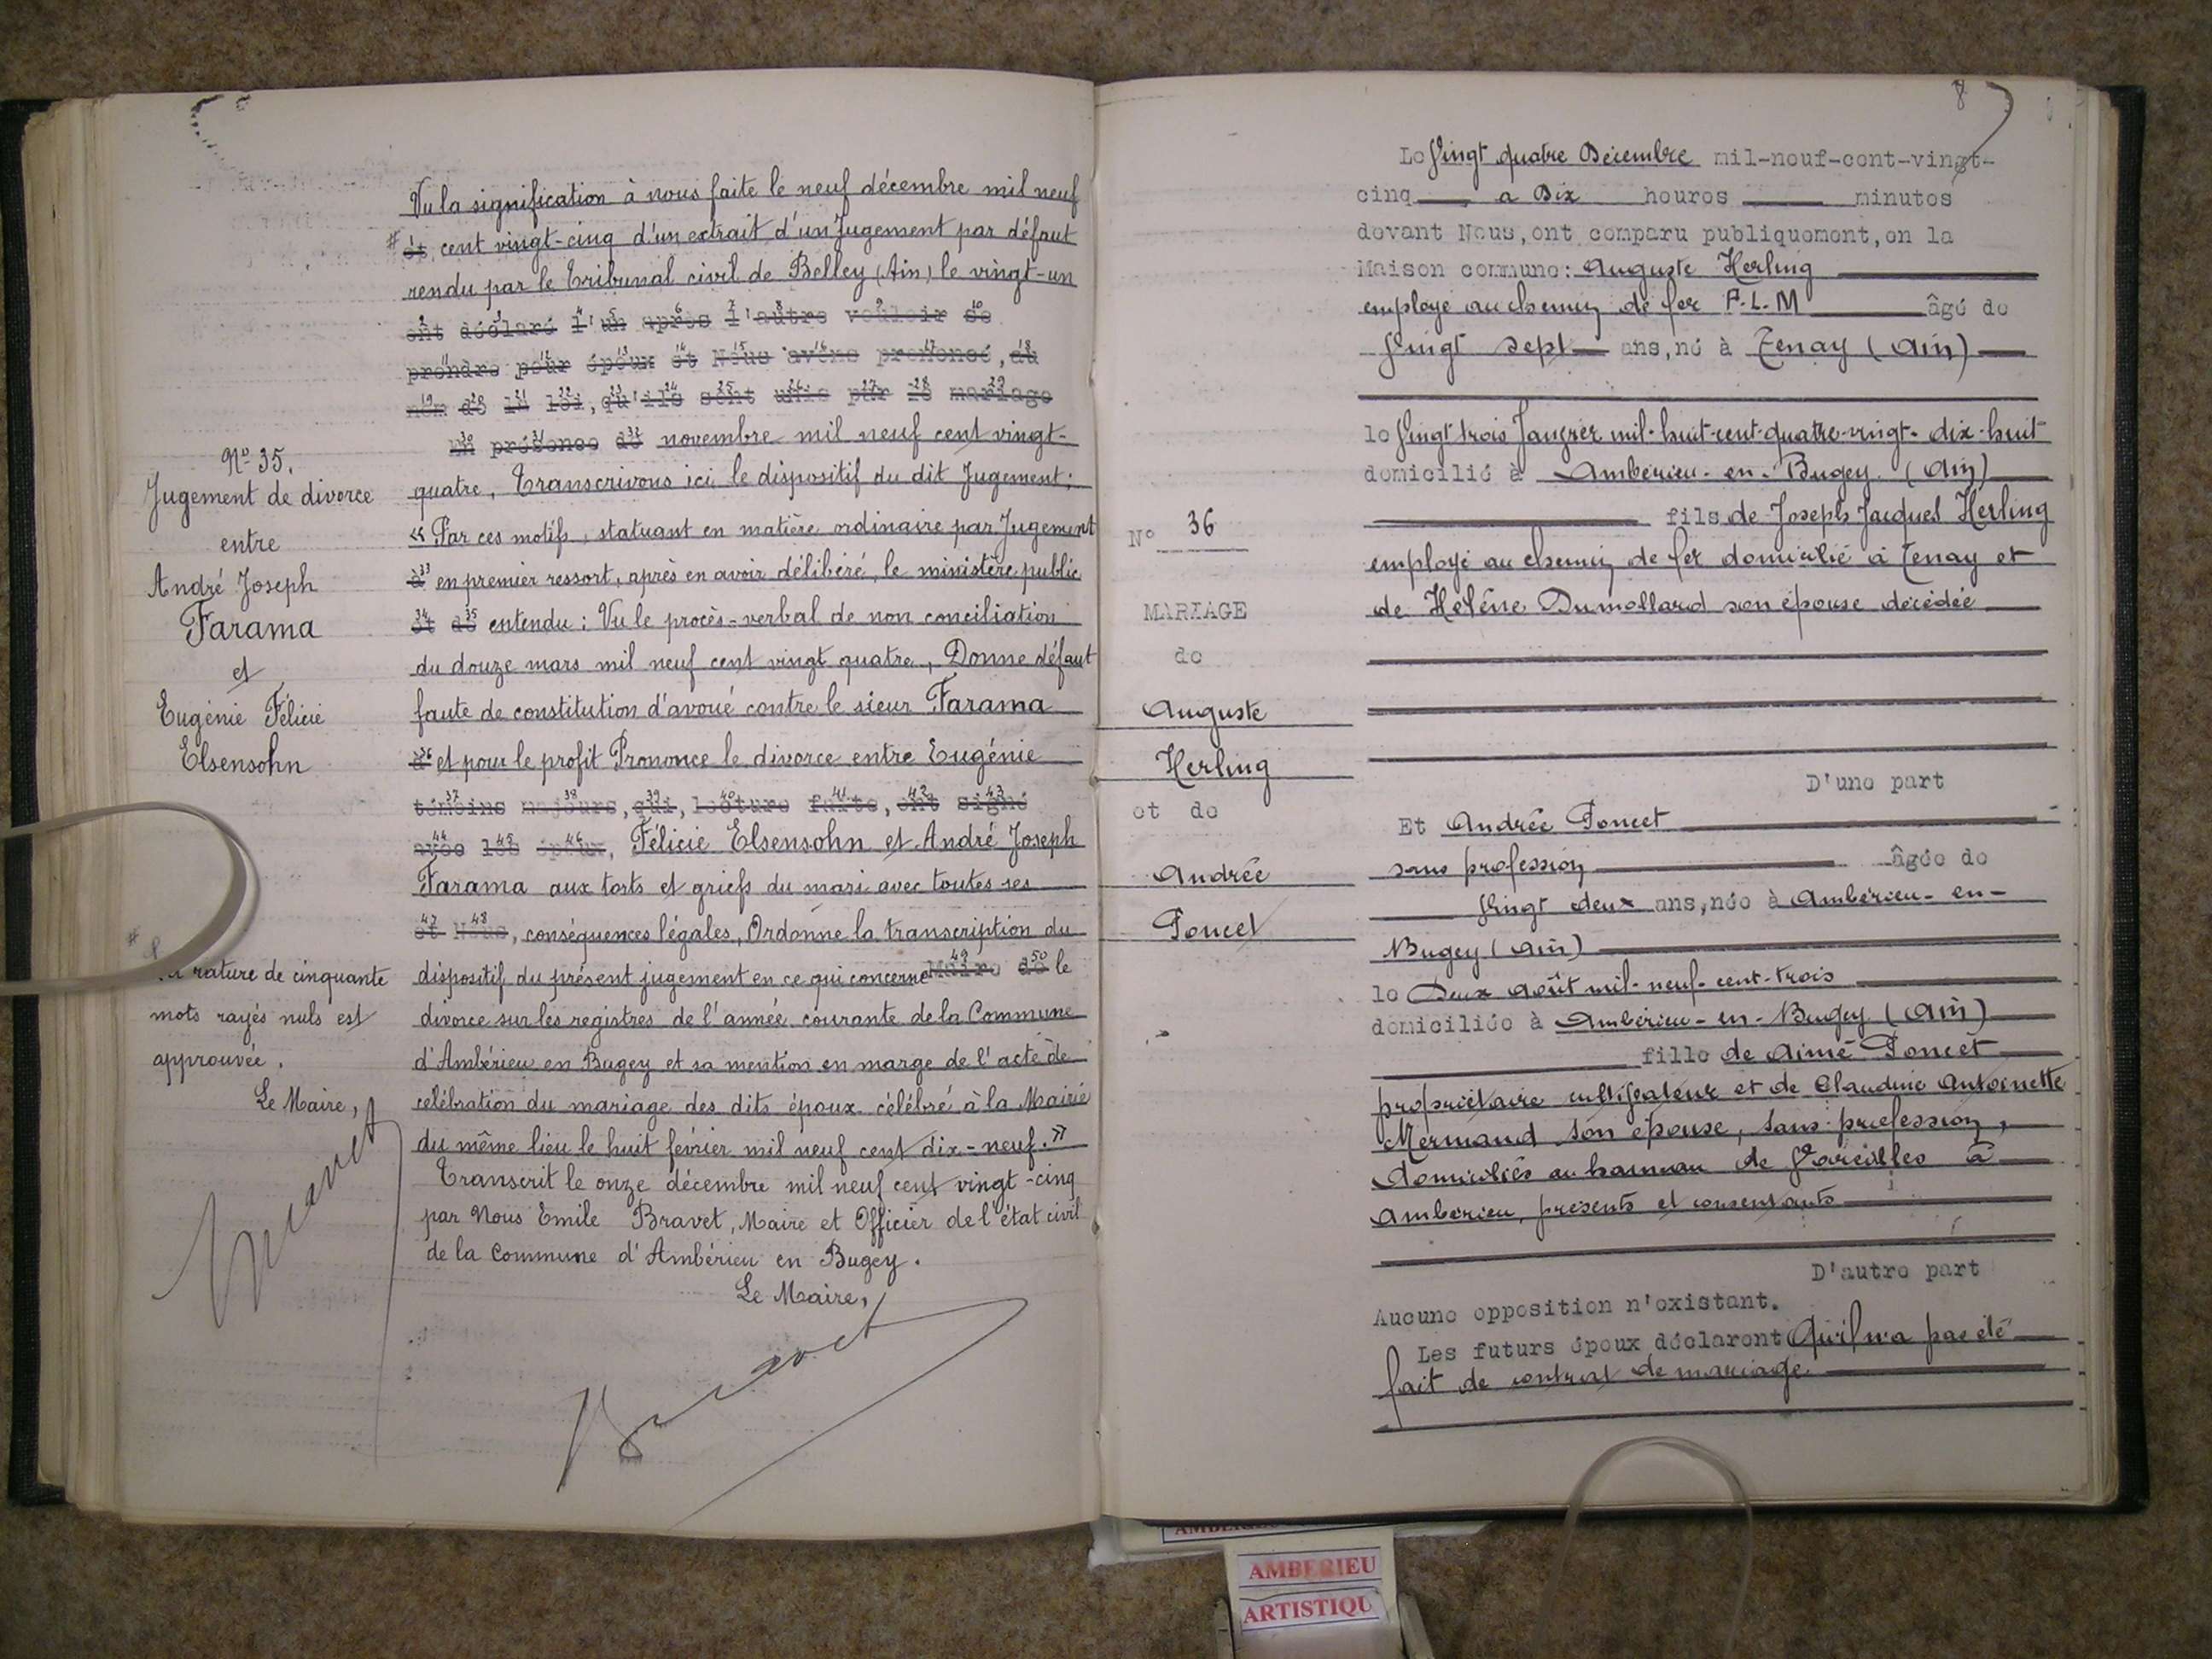 Vu la signification à nous faite le neuf décembre mil neuf
# et cent vingt-cinq d'un extrait d'un Jugement par défaut
rendu par le Tribunal civil de Belley (Ain) le vingt-un
ont déclaré l'un après l'autre vouloir se
prendre pour époux et Nous avons prononcé, au
nom de la loi, qu'ils sont unis par le mariage
prononce novembre mil neuf cent vingt-
quatre, Transcrivons ici le dispositif du dit Jugement;
« Par ces motifs, statuant en matière ordinaire par Jugement
à en premier ressort, après en avoir délibéré, le ministère public
entendu : Vu le procès-verbal de non conciliation
du douze mars mil neuf cent vingt quatre, Donne défaut
faute de constitution d'avoué contre le sieur Farama
et pour le profit Prononce le divorce entre Eugénie
témoins majeurs, qui, lecture faite, ont signé
avec les époux, Félicie Elsensohn et André Joseph
Farama aux torts et griefs du mari avec toutes ses
et Nous, conséquences légales, Ordonne la transcription du
dispositif du présent jugement en ce qui concerne Maire de le
divorce sur les registres de l'année courante de la Commune
d'Ambérieu en Bugey et sa mention en marge de l'acte de
célébration du mariage des dits époux célébré à la Mairie
du même lieu le huit février mil neuf cent dix-neuf. »
Transcrit le onze décembre mil neuf cent vingt-cinq
par Nous Emile Bravet, Maire et Officier de l'état civil
de la Commune d'Ambérieu en Bugey.
Le Maire,
Bravet
No 35.
Jugement de divorce
entre
André Joseph
Farama
et
Eugénie Félicie
Elsensohn
#
rature de cinquante
mots rayés nuls est
approuvée.
Le Maire,
Bravet
8
Le Vingt quatre Décembre mil-neuf-cent-vingt-
cinq à Dix heures minutes
devant Nous, ont comparu publiquement, en la
Maison commune: Auguste Herling
employé au chemin de fer P.L.M âgé de
Vingt sept ans, né à Tenay (Ain)
le Vingt trois Janvier mil-huit-cent-quatre-vingt-dix-huit
domicilié à Ambérieu-en-Bugey. (Ain)
fils de Joseph Jacques Herling
employé au chemin de fer domicilié à Tenay et
de Hélène Dumollard son épouse décédée
D'une part
Et Andrée Poncet
sans profession âgée de
Vingt deux ans, née à Ambérieu-en-
Bugey (Ain)
le Deux Août mil-neuf-cent-trois
domiciliée à Ambérieu-en-Bugey (Ain)
fille de Aimé Poncet
propriétaire cultivateur et de Claudine Antoinette
Mermand son épouse, sans profession,
domiciliés au hameau de Vareilles à
Ambérieu, présents et consentants
D'autre part
Aucune opposition n'existant.
Les futurs époux déclarent Qu'il n'a pas été
fait de contrat de mariage.
No 36
MARIAGE
de
Auguste
Herling
et de
Andrée
Poncet
AMBERIEU
ARTISTIQU